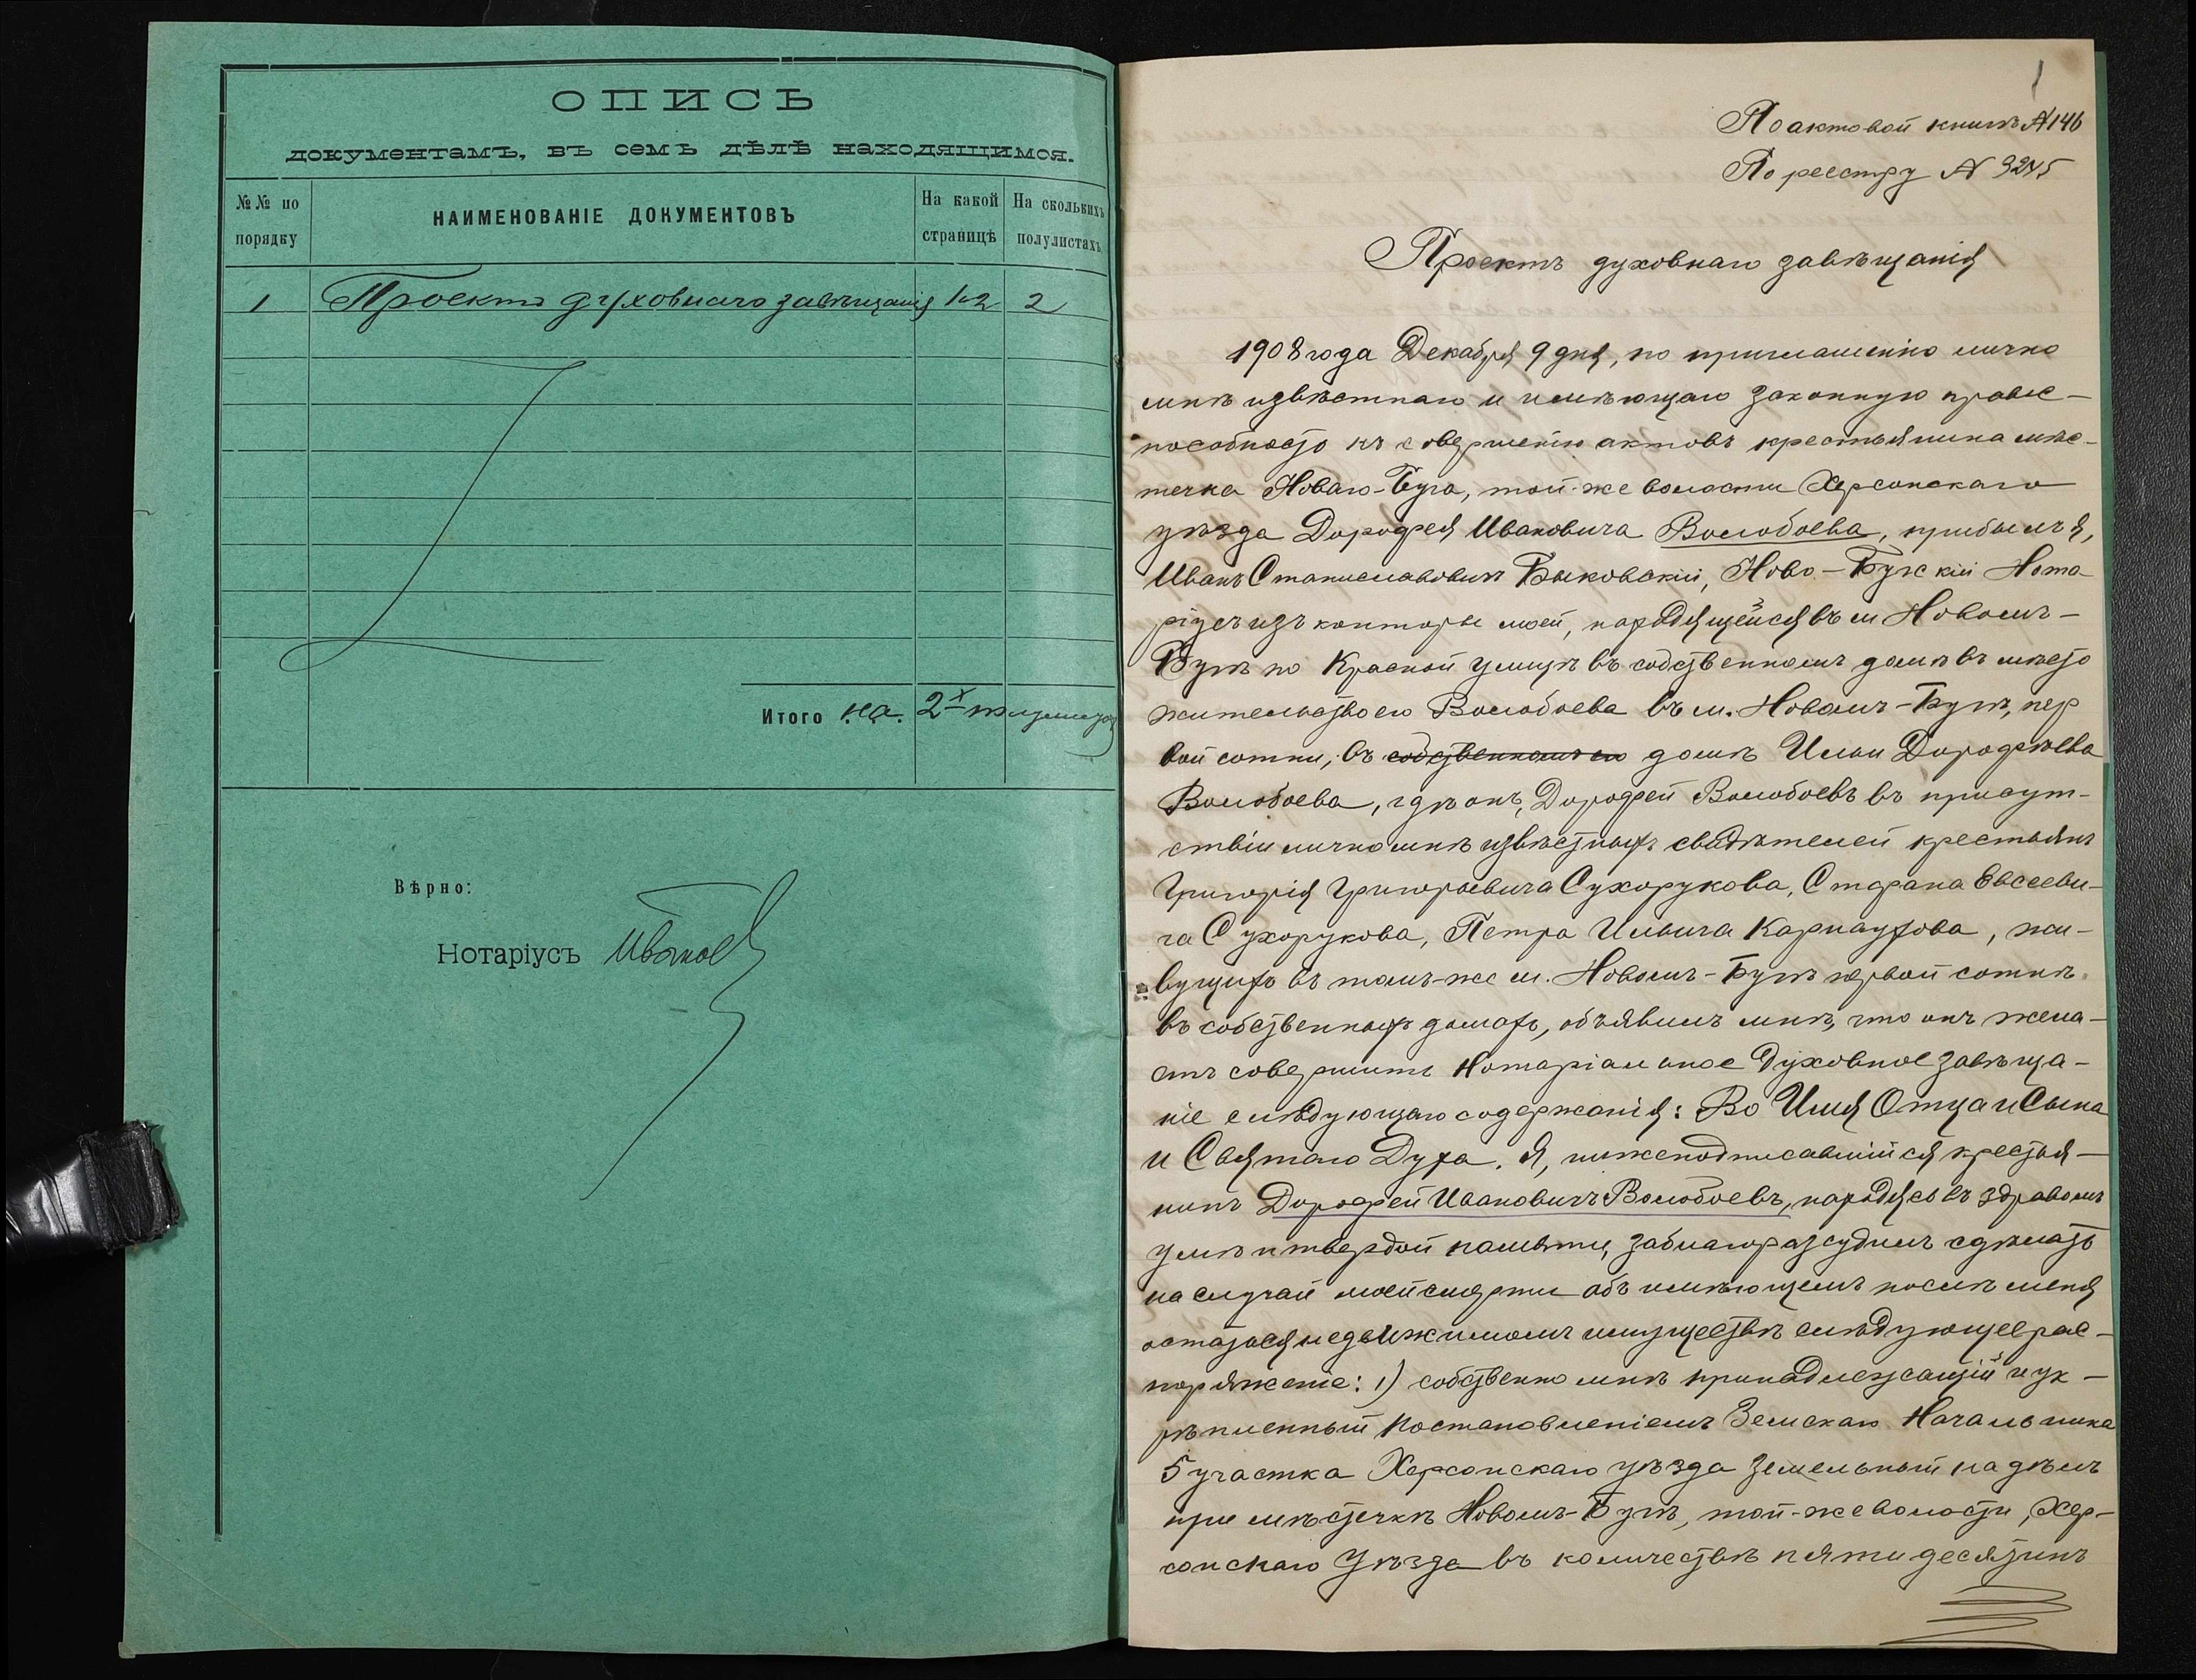 ОПИСЬ
документамъ, въ семъ дѣлѣ находящимся.
№№ по порядку
НАИМЕНОВАНІЕ ДОКУМЕНТОВЪ
На какой страницѣ
На сколькихъ полулистахъ
1 Проектъ духовнаго завѣщанія 1-2 2
Итого на 2-х полулистах
Вѣрно:
Нотаріусъ
1
По актовой книгѣ № 146
По реестру № 3245
Проектъ духовнаго завѣщанія
1908 года Декабря 9 дня, по приглашенію лично
мнѣ извѣстнаго и имѣющаго законную правос-
пособность къ совершенію актовъ крестьянина мѣс-
течка Новаго-Буга, той-же волости Херсонскаго
уѣзда Дорофея Ивановича Волобоева, прибылъ я,
Иванъ Станиславовичъ Быковскій, Ново-Бугскій Нота-
ріусъ изъ конторы моей, находящейся въ м Новомъ-
Бугѣ по Красной улицѣ въ собственномъ домѣ въ мѣсто
жительство его Волобоева въ м. Новомъ-Бугѣ, пер
вой сотни, въ собственномъ его домѣ Ильи Дорофѣева
Волобоева, гдѣ онъ, Дорофей Волобоевъ въ присут-
ствіи лично мнѣ извѣстныхъ свидѣтелей крестьянъ
Григорія Григорьевича Сухорукова, Стефана Евсееви-
ча Сухорукова, Петра Ильича Карнаухова, жи-
вущихъ въ томъ-же м. Новомъ-Бугѣ первой сотнѣ
въ собственныхъ домахъ, объявилъ мнѣ, что онъ жела-
етъ совершить Нотаріальное Духовное завѣща-
ніе слѣдующаго содержанія: Во Имя Отца и Сына
и Святаго Духа. Я, нижеподписавшійся крестья-
нинъ Дорофей Ивановичъ Волобоевъ, находясь въ здравомъ
умѣ и твердой памяти, заблагоразсудилъ сдѣлать
на случай моей смерти объ имѣющемъ послѣ меня
остаться недвижимомъ имуществѣ слѣдующее рас-
поряженіе: 1) собственно мнѣ принадлежащій и ук-
рѣпленный постановленіемъ Земскаго Начальника
5 участка Херсонскаго уѣзда земельный надѣлъ
при мѣстечкѣ Новомъ-Бугѣ, той-же волости, Хер-
сонскаго Уѣзда въ количествѣ пяти десятинъ